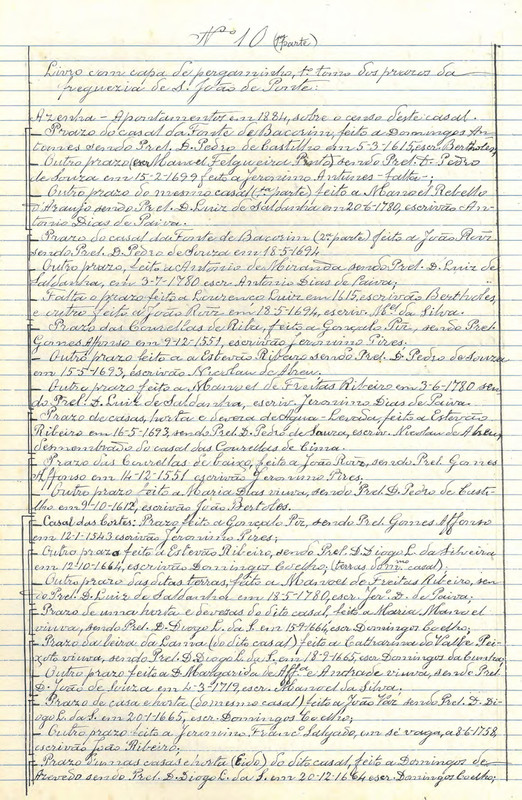 Nº 10 (1ª parte)
Livro com capa de pergaminho, 1º tomo dos prazos da
freguezia de S. João de Ponte:
Azenha - Apontamentos em 1884, sobre o censo deste casal.
- Prazo do casal da Fonte de Bacorim, feito a Domingos An-
tunes sendo Prel. D. Pedro de Castilho em 5-3-1615, escr. Bertholes,
Outro prazo Manoel Felgueira sendo Prel. D. Pedro
de Souza em 15-2-1699 feito a Jeronimo Antunes - falta -;
- Outro prazo do mesmo casal (1ª parte) feito a Manoel Rebello
Araujo, sendo Prel. D. Luiz de Saldanha em 20-6-1780, escrivão An-
tonio Dias de Paiva.
- Prazo do casal da Fonte de Bacorim (2ª parte) feito a João Roiz
sendo Prel. D. Pedro de Souza em 18-5-1694
- Outro prazo, feito a Antonio de Miranda sendo Prel. D. Luiz de
Saldanha, em 3-7-1780 escr. Antonio Dias de Paiva;
- Falta o prazo feito a Lourenço Luiz em 1615, escrivão Bertholes,
e outro feito a João Roiz em 18-5-1694, escriv. Mel. da Silva.
- Prazo das Courellas de Riba, feito a Gonçalo Piz, sendo Prel.
Gomes Affonso em 9-12-1551, escrivão Jeronimo Pires.
- Outro prazo feito a a Estevão Ribeiro sendo Prel. D. Pedro de Souza
em 15-5-1693, escrivão Nicolau de Abreu.
- Outro prazo feito a Manoel de Freitas Ribeiro em 3-6-1780 sen-
do Prel. D. Luiz de Saldanha, escriv. Jeronimo Dias de Paiva.
- Prazo de casas, horta e deveza de Agua-Levada, feito a Estevão
Ribeiro em 16-5-1693, sendo Prel. D. Pedro de Souza, escriv. Nicolau de Abreu,
desmembrado do casal das Courellas de Cima.
- Prazo das Courellas de baixo, feito a João Roiz, sendo Prel. Gomes
Affonso em 14-12-1551 escrivão Jeronimo Pires.
- Outro prazo feito a Maria Dias viuva, sendo Prel. D. Pedro de Casti-
lho em 9-10-1612, escrivão João Bertoles.
- Casal das Cortes: Prazo feito a Gonçalo Piz, sendo Prel. Gomes Affonso
em 12-1-1543 escrivão Jeronimo Pires;
- Outro prazo feito a Estevão Ribeiro, sendo Prel. D. Diogo L. da Silveira
em 12-10-1664, escrivão Domingos Coelho, (terras do mmo casal);
- Outro prazo das ditas terras, feito a Manoel de Freitas Ribeiro, sen-
do Prel. D. Luiz de Saldanha em 18-5-1780, escr. Jer. D. de Paiva;
- Prazo de uma horta e devezas do dito casal, feito a Maria Manoel
viuva, sendo Prel. D. Diogo L. da S. em 15-9-1664, escr. Domingos Coelho;
- Prazo da leira da Lama (do dito casal) feito a Catharina do Valle Pei-
xoto viuva, sendo Prel. D. Diogo L. da S. em 18-9-1665, escr. Domingos da Cunha;
- Outro prazo feito a D. Margarida de Affa. e Andrade viuva, sendo Prel.
D. João de Souza em 4-3-1719, escr. Manoel da Silva;
- Prazo de casa e horta (do mesmo casal) feito a João Vaz sendo Prel. D. Di-
ogo L. da S. em 20-1-1665, escr. Domingos Coelho;
- Outro prazo feito a Jeronimo Franco. Salgado, em sé vaga, a 8-6-1758,
escrivão João Ribeiro;
- Prazo d'umas casas e horta (Eido) do dito casal, feito a Domingos de
Azevedo sendo Prel. D. Diogo L. da S. em 20-12-1664 escr. Domingos Coelho;